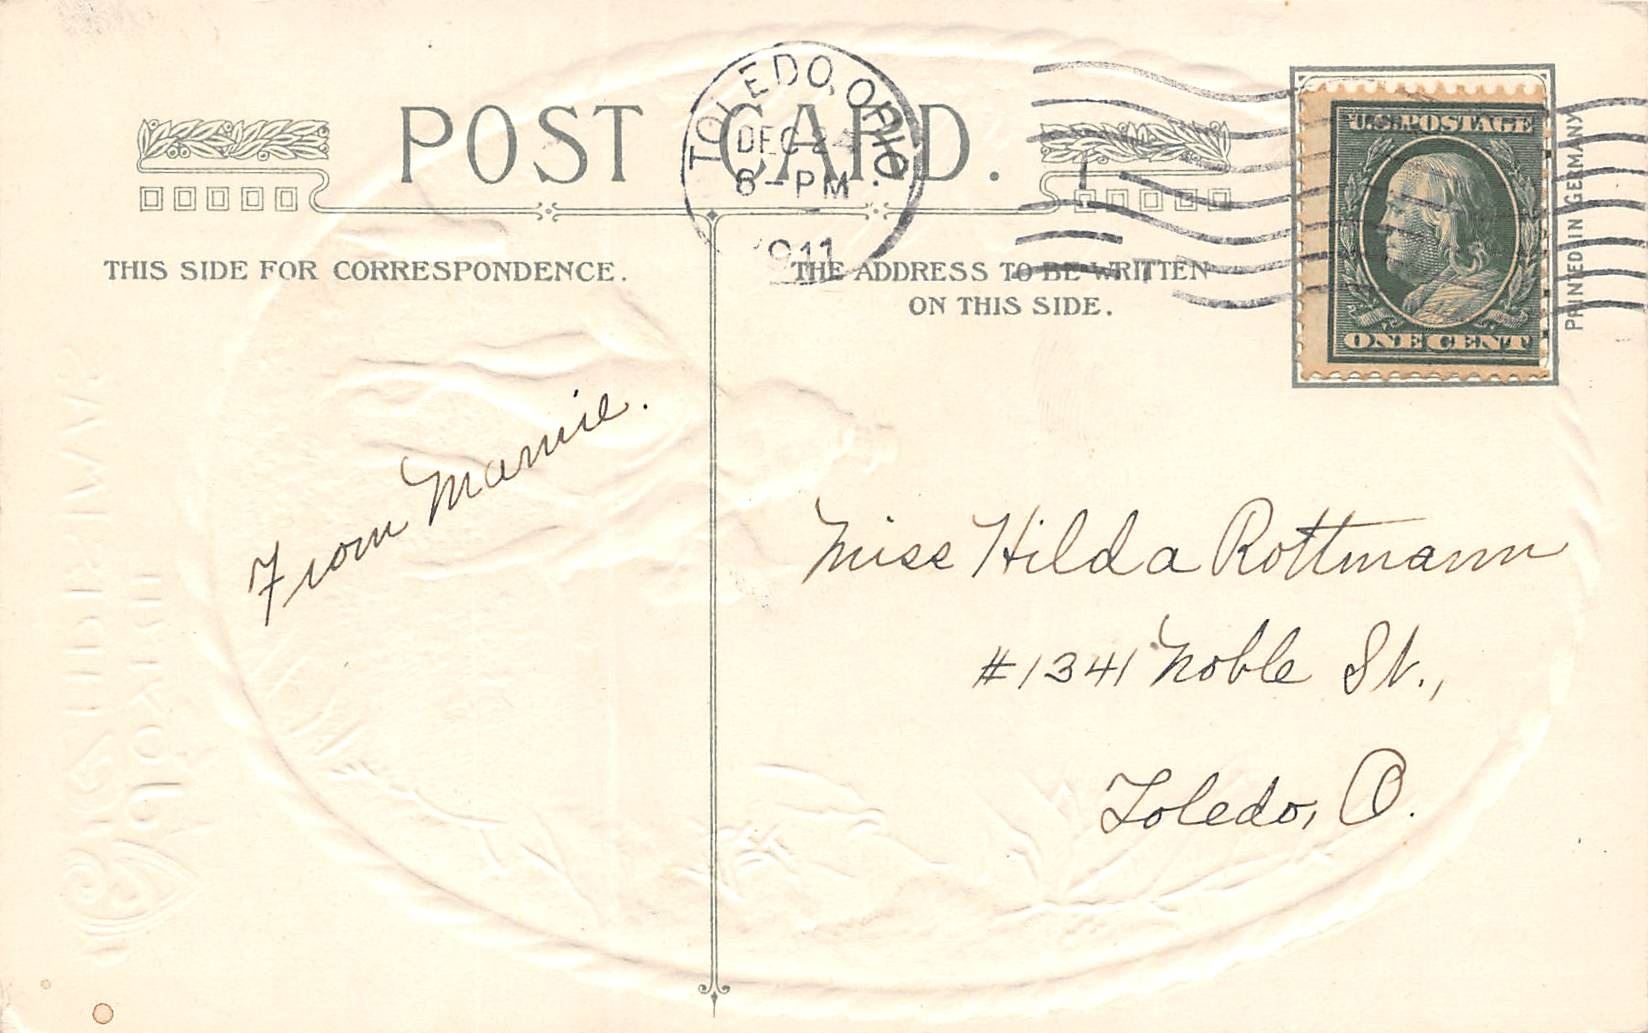 POST CARD.
TOLEDO, OHIO.
DEC 24
6-PM
1911
U.S. POSTAGE
ONE CENT
PRINTED IN GERMANY
THIS SIDE FOR CORRESPONDENCE.
THE ADDRESS TO BE WRITTEN
ON THIS SIDE.
From Mamie.
Miss Hilda Rottmann
#1341 Noble St.,
Toledo, O.